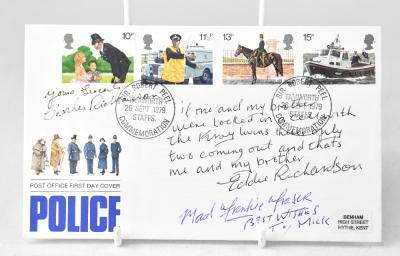 10P
11½P
13P
15P
Yours Sincerely
Charles Richardson
SIR ROBERT PEEL
TAMWORTH
26 SEPT 1979
STAFFS.
COMMEMORATION
SIR ROBERT PEEL
TAMWORTH
26 SEPT 1979
STAFFS.
COMMEMORATION
if one and my brother
were locked in a with
the Kray twins only
two coming out and thats
me and my brother
Eddie Richardson
Mad Frankie Fraser
BEST WISHES
To Mick
POST OFFICE FIRST DAY COVER
POLICE
DENHAM
HIGH STREET
HYTHE, KENT